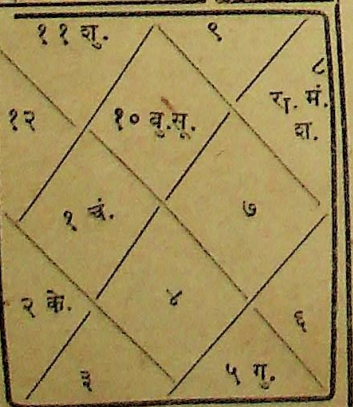 ११ शु.
९
८
रा. मं.
श.
१२
१० बु.सू.
१ चं.
७
२ के.
४
६
३
५ गु.